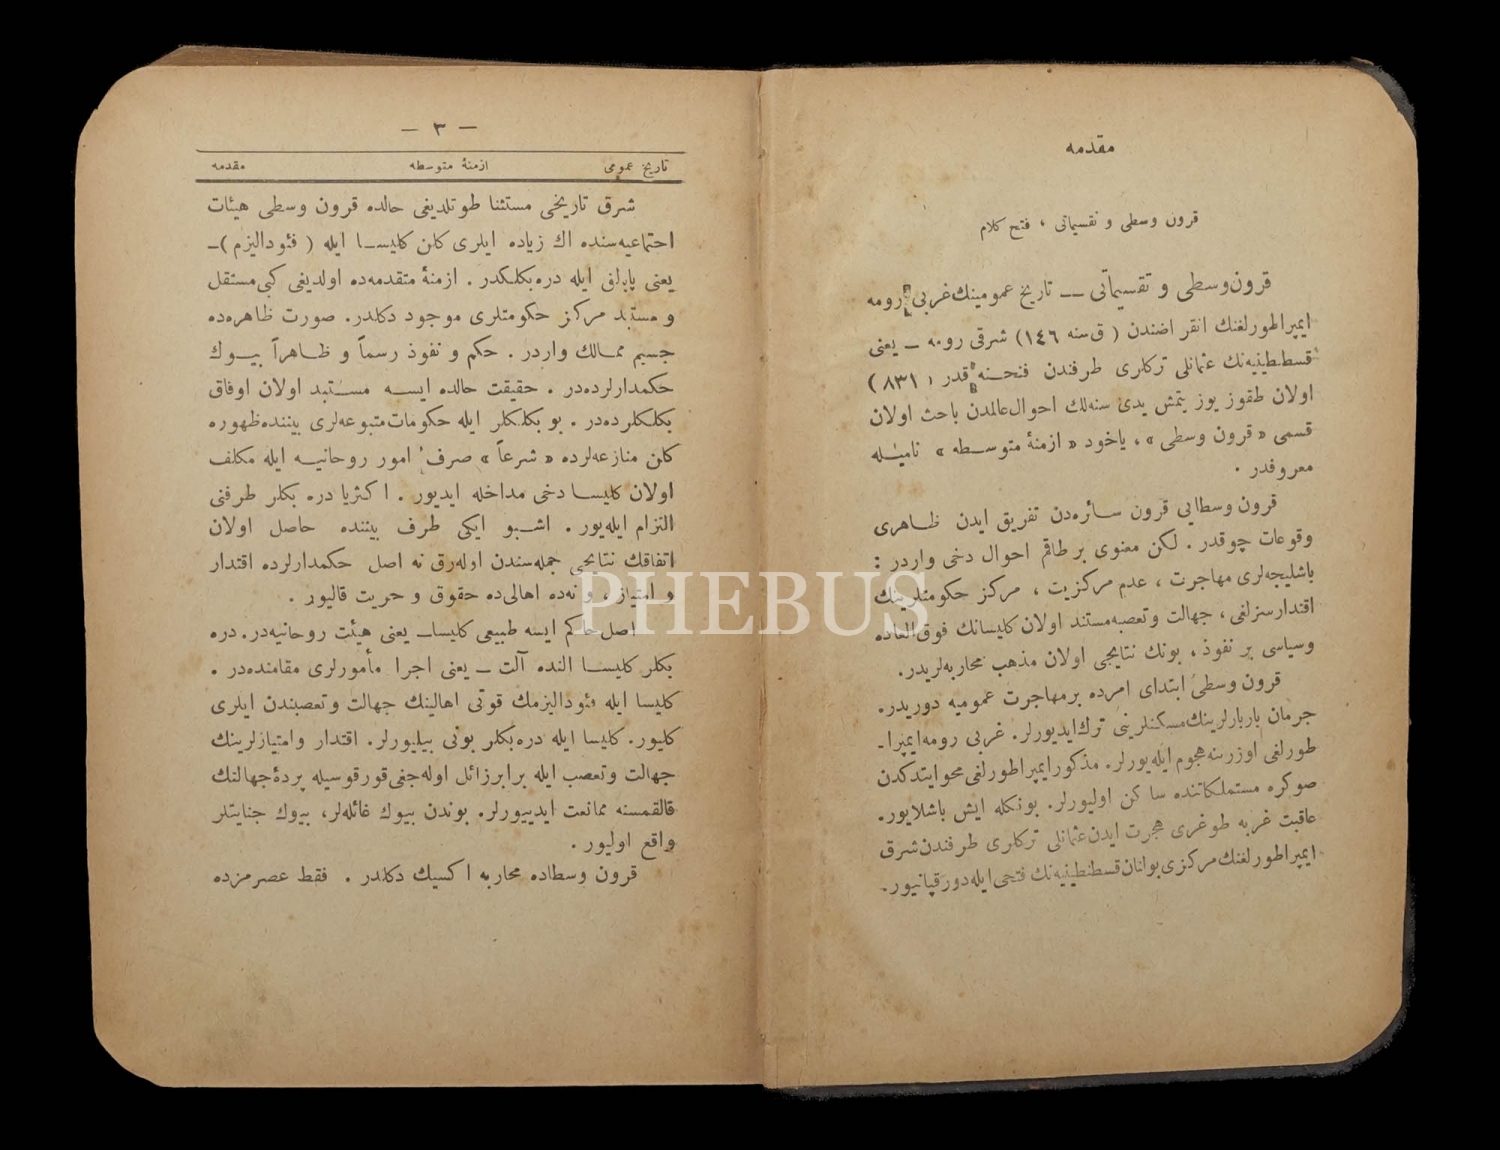 مقدمه
قرون وسطی و تقسیماتی ، فتح کلام
قرون وسطی و تقسیماتی — تاریخ عمومینك غربی رومه
ایمپراطورلغنك انقراضندن ( ق سنه ١٤٦ ) شرقی رومه — یعنی
قسطنطینیه‌نك عثمانلی ترکلری طرفندن فتحنه قدر ( ٨٣١ )
اولان طقوز یوز یتمش یدی سنه‌لك احوال عالمدن باحث اولان
قسمی « قرون وسطی » ، یاخود « ازمنهٔ متوسطه » نامیله
معروفدر .
قرون وسطایی قرون سائره‌دن تفریق ایدن ظاهری
وقوعات چوقدر . لکن معنوی بر طاقم احوال دخی واردر :
باشلیجه‌لری مهاجرت ، عدم مرکزیت ، مرکز حکومتلرینك
اقتدارسزلغی ، جهالت و تعصبه مستند اولان کلیسانك فوق العاده
وسیاسی بر نفوذ ، بونك نتایجی اولان مذهب محاربه‌لریدر.
قرون وسطی ابتدای امرده بر مهاجرت عمومیه دوریدر.
جرمان باربارلرینك مسکنلرینی ترك ایدیورلر. غربی رومه ایمپرا-
طورلغی اوزرینه هجوم ایله‌یورلر. مذکور ایمپراطورلغی محو ایتدکدن
صوکره مستملکاتنده ساکن اولیورلر. بونکله ایش باشلایور.
عاقبت غربه طوغری هجرت ایدن عثمانلی ترکلری طرفندن شرق
ایمپراطورلغنك مرکزی بولنان قسطنطینیه‌نك فتحی ایله دور قپانیور.
— ٣ —
تاریخ عمومی ازمنهٔ متوسطه مقدمه
شرق تاریخی مستثنا طوتلدیغی حالده قرون وسطی هیئات
اجتماعیه‌سنده اك زیاده ایلری کلن کلیسا ایله ( فئودالیزم )-
یعنی پاپالق ایله دره‌بکلکدر . ازمنهٔ متقدمه‌ده اولدیغی کبی مستقل
و مستبد مرکز حکومتلری موجود دکلدر. صورت ظاهره‌ده
جسیم ممالك واردر . حکم و نفوذ رسماً و ظاهراً بیوك
حکمدارلرده‌در . حقیقت حالده ایسه مستبد اولان اوفاق
بکلکلرده‌در . بو بکلکلر ایله حکومات متبوعه‌لری بیننده ظهوره
کلن منازعه‌لرده « شرعاً » صرف امور روحانیه ایله مکلف
اولان کلیسا دخی مداخله ایدیور . اکثریا دره بکلر طرفنی
التزام ایله‌یور . اشبو ایکی طرف بیننده حاصل اولان
اتفاقك نتایجی جمله‌سندن اوله‌رق نه اصل حکمدارلرده اقتدار
و امتیاز ، و نه‌ده اهالی‌ده حقوق و حریت قالیور .
اصل حاکم ایسه طبیعی کلیسا- یعنی هیئت روحانیه‌در. دره
بکلر کلیسا النده آلت — یعنی اجرا مأمورلری مقامنده‌در .
کلیسا ایله فئودالیزمك قوتی اهالینك جهالت و تعصبندن ایلری
کلیور. کلیسا ایله دره‌بکلر بونی بیلیورلر. اقتدار و امتیازلرینك
جهالت و تعصب ایله برابر زائل اوله‌جغی قورقوسیله پردهٔ جهالتك
قالقمسنه ممانعت ایدییورلر. بوندن بیوك غائله‌لر، بیوك جنایتلر
واقع اولیور .
قرون وسطاده محاربه اکسیك دکلدر . فقط عصرمزده
PHEBUS